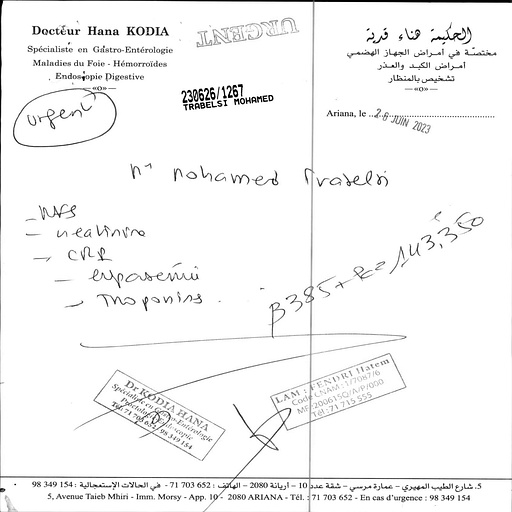 Docteur Hana KODIA
Spécialiste en Gastro-Entérologie
Maladies du Foie - Hémorroïdes
Endoscopie Digestive
—«o»—
URGENT
الحكيمة هناء قدية
مختصّة في أمراض الجهاز الهضمي
أمراض الكبد والعذر
تشخيص بالمنظار
—«o»—
Urgent
230626/1267
TRABELSI MOHAMED
Ariana, le 26 JUIN 2023
Mr Mohamed Trabelsi
- NFS
- CRP
- Troponins
B385+ = 143,350
Dr KODIA HANA
Spécialiste en Gastro-Entérologie
Tél: 71 703 652 / 98 349 154
LAM: FENDRI Hatem
Code CNAM: 1/7087/6
MF: 200615Q/A/P/000
Tél: 71 715 555
5، شارع الطيب المهيري – عمارة مرسي – شقة عدد 10 – أريانة 2080 – الهاتف : 652 703 71 - في الحالات الإستعجالية : 154 349 98
5, Avenue Taieb Mhiri - Imm. Morsy - App. 10 - 2080 ARIANA - Tél. : 71 703 652 - En cas d'urgence : 98 349 154